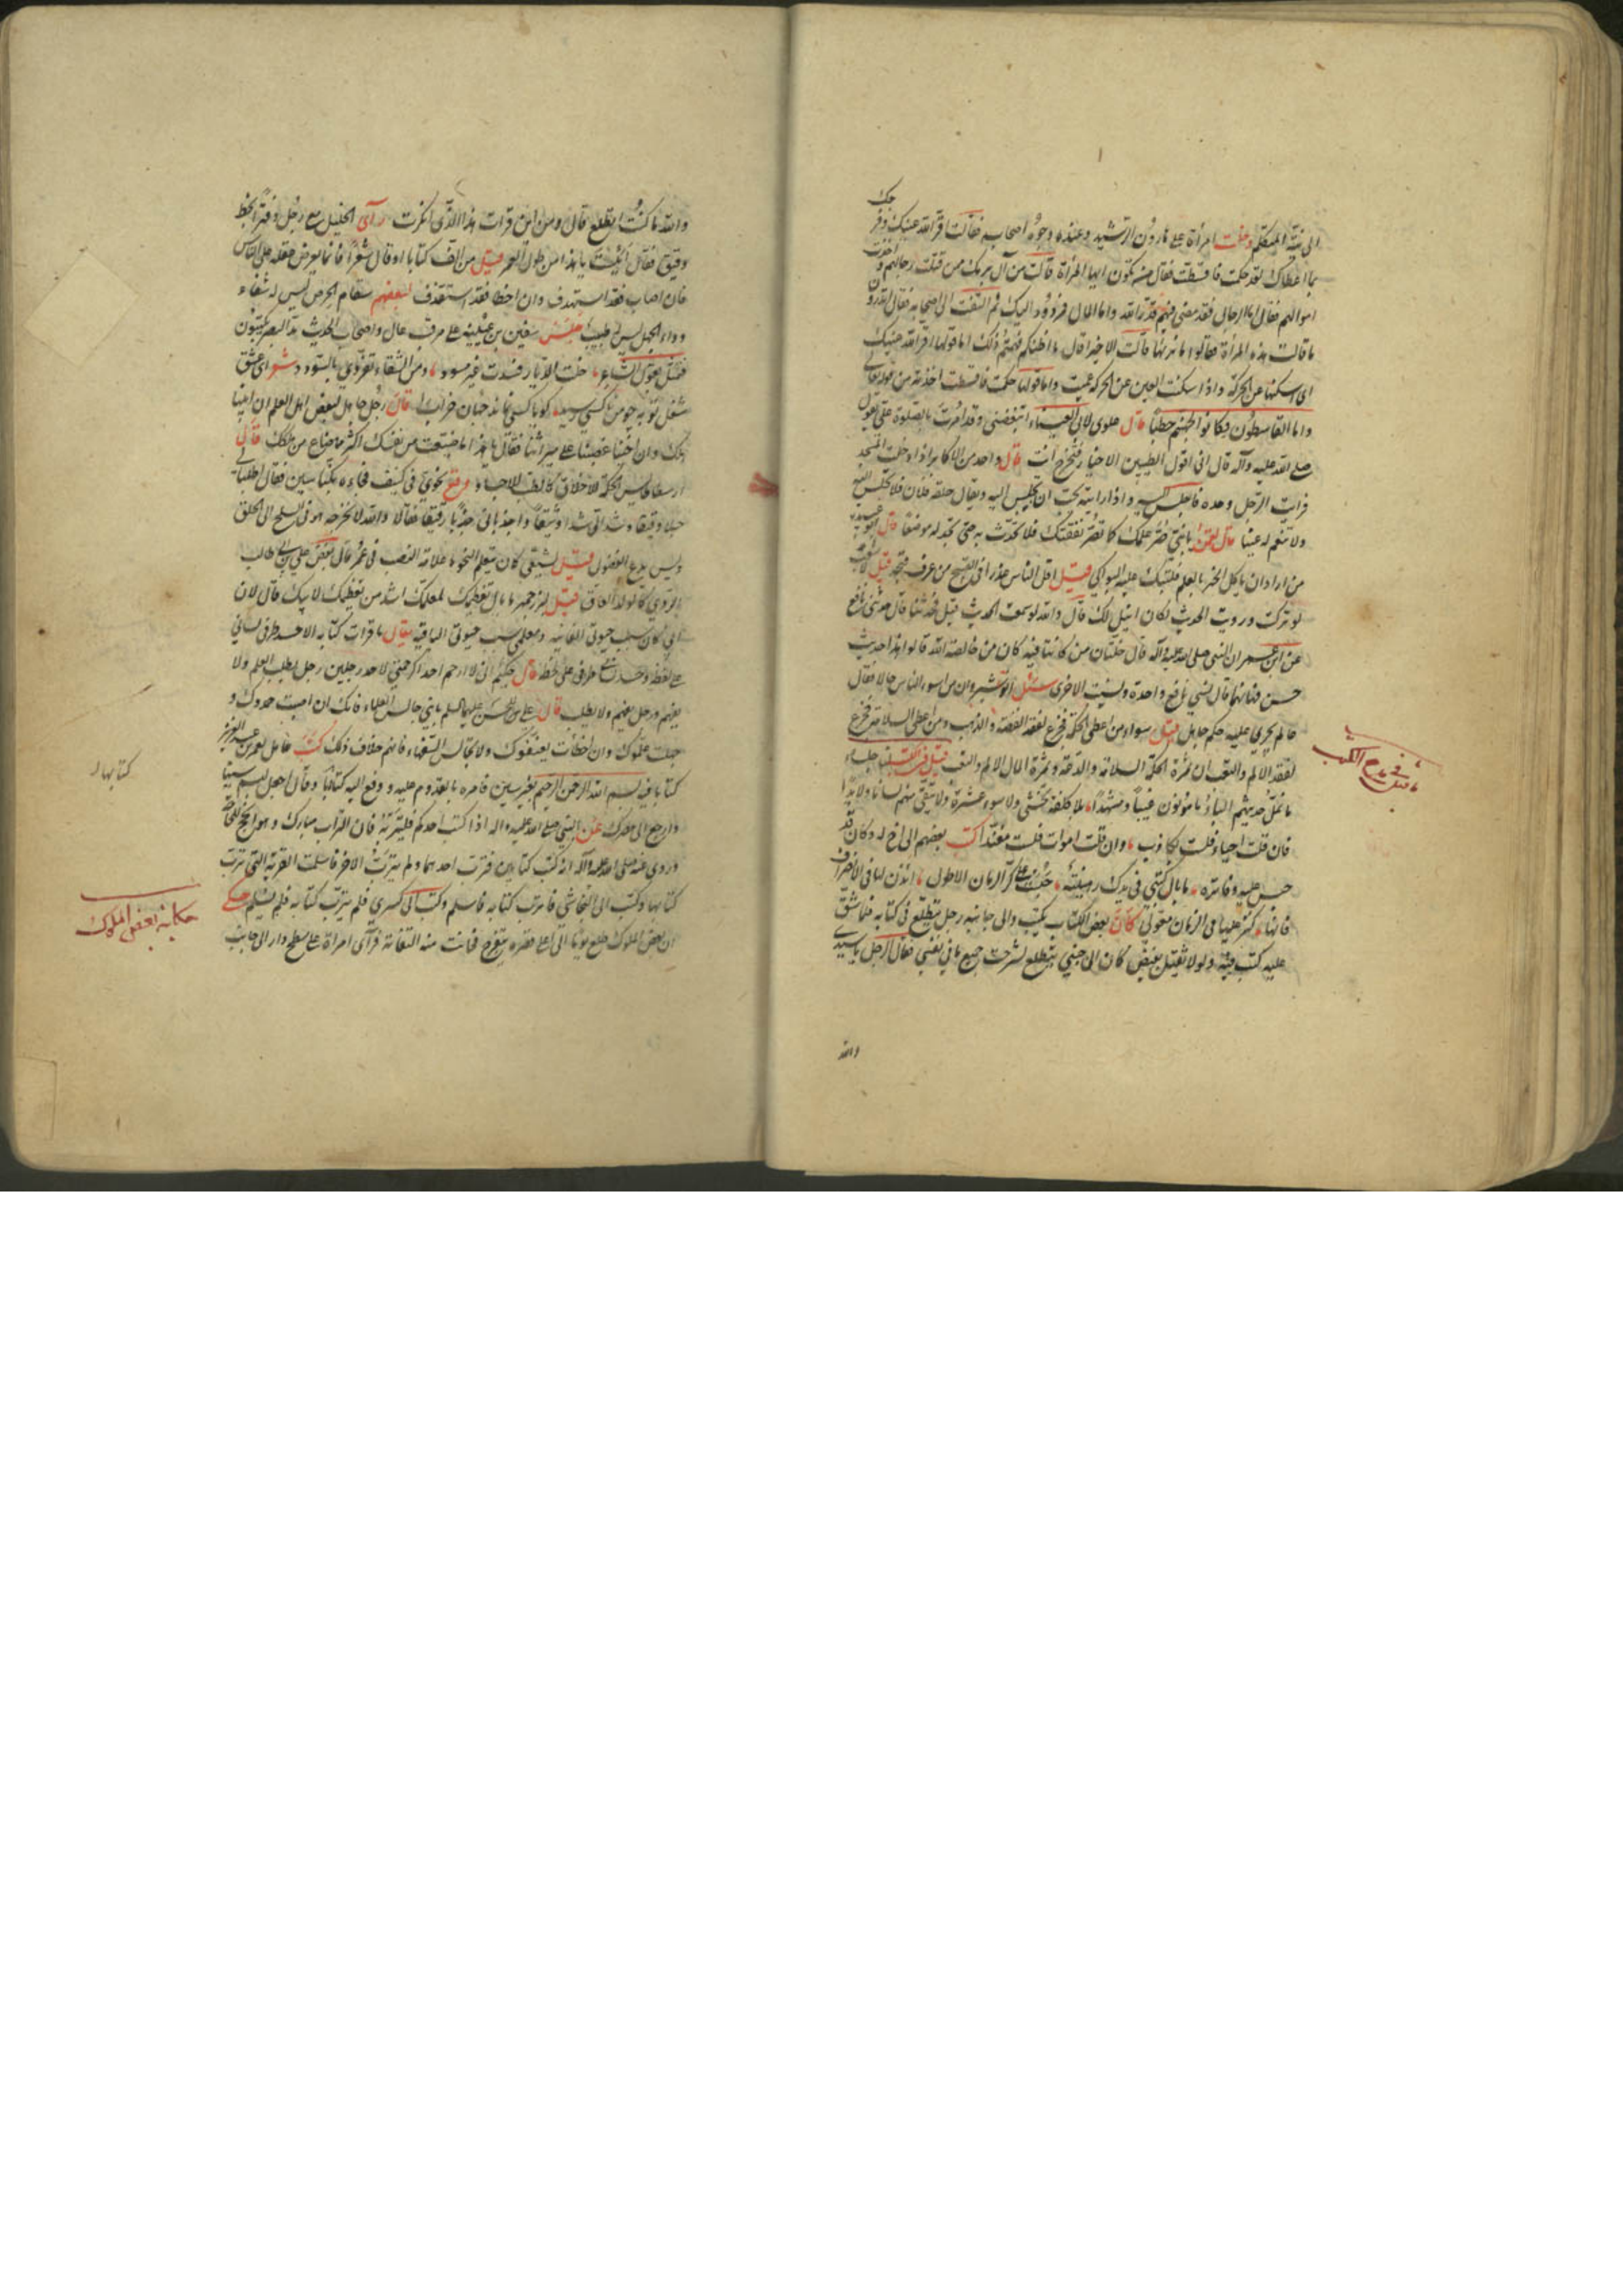 الى نية المتكلم دخلت امرأة على هارون الرشيد وعنده وجوه اصحابه فقالت اقر الله عينك وفرحك
بما اعطاك لقد حكمت فاقسطت فقال من تكون ايها المرأة قالت من آل برمك ممن قتلت رجالهم واخذت
اموالهم فقال اما الرجال فقد مضى فيهم قدر الله واما المال فمردود اليك ثم التفت الى اصحابه فقال اتدرون
ما قالت هذه المرأة فقالوا ما نريها قالت الا خيرا قال ما اظنكم فهمتم ذلك اما قولها اقر الله عينك
اى اسكنها عن الحركة واذا سكنت العين عن الحركة عميت واما قولها حكمت فاقسطت اخذته من قوله تعالى
واما القاسطون فكانوا لجهنم حطبا قال علوى لابى العيناء اتبغضنى وقد امرت بالصلوة على تقول
صلى الله عليه وآله قال انى اقول الطيبين الاخيار فتخرج انت قال واحد من الاكابر اذا دخلت المسجد
فرايت الرجل وحده فاجلس اليه واذا رايته يحب ان يجلس اليه ويقال حلقة فلان فلا تجلس اليه
ولا تنعم له عينا قال لقمن يا بنى صر علمك كما تصر نفقتك فلا تحدث به حتى تجد له موضعا قال ابو
من اراد ان ياكل الخبز بالعلم فلتبك عليه البواكى قيل اقل الناس عذرا فى القبيح من عرف قبحه قيل لاشعب
لو تركت ورويت الحديث لكان انبل لك قال والله لو سمعت الحديث قيل فحدثنا قال حدثنى نافع
عن ابن عمر ان النبى صلى الله عليه وآله قال خلتان من كانتا فيه كان من خالصة الله قالوا هذا حديث
حسن فما هما قال نسى نافع واحدة ونسيت الاخرى سئل انوشيروان من اسوء الناس حالا فقال
عالم يجرى عليه حكم جاهل قيل سواء من اعطى الحكمة فجزع لفقد الفضة والذهب ومن اعطى السلامة فجزع
لفقد الالم والتعب ان ثمرة الحكمة السلامة والدعة وثمرة المال الالم والتعب قيل فى الكتب لنا جلساء
ما نمل حديثهم الباء مأمونون غيبا ومشهدا بلا كلفة تخشى ولا سوء عشرة ولا نتقى منهم لسانا ولا يدا
فان قلت احياء فلست بكاذب وان قلت اموات فلست مفندا كتب بعضهم الى اخ له وكان قد
حبس عليه دفاتره ما بال كتبى فى يديك رهينة حبست على كر الزمان الاطول ائذن لها فى الانصراف
فانها كنز عليها فى الزمان معولى كان بعض الكتاب يكتب والى جانبه رجل يتطلع فى كتابه فلما شق
عليه كتب فيه ولولا ثقيل بغيض كان الى جنبى يتطلع لشرحت جميع ما فى نفسى فقال الرجل يا سيدى
والله
فى مدح الكتب
ما قيل
والله ما كنت اتطلع قال ومن اين قرات هذا الذى انكرت رآى الخليل مع رجل دفترا بخط
دقيق فقال ايئست يا هذا من طول العمر قيل من الف كتابا او قال شعرا فانما يعرض عقله على الناس
فان اصاب فقد استهدف وان اخطا فقد استقذف لبعضهم سقام الحرص ليس له شفاء
وداء الجهل ليس له طبيب جلس سفين بن عيينة على مرقب عال واصحاب الحديث مد البصر يكتبون
فتمثل بقول الشاعر خلت الديار فسدت غير مسود ومن الشقاء تفردى بالسؤدد
قال رجل جاهل لبعض اهل العلم ان
ارسطاطاليس الحكمة للاخلاق كالطب للاجساد وقع نحوى فى كنيف فجاءه بكناسين فقال اطلبا لى
حبلا دقيقا وشدانى شدا وثيقا واجذبانى جذبا رقيقا فقالا والله لا نخرجه هو فى السلح الى الحلق
وليس يدع الفضول قيل لشيعى كان يتعلم النحو ما علامة النصب فى عمر قال بغض على بن ابى طالب
قيل لبزرجمهر ما بال تعظيمك لمعلمك اشد من تعظيمك لابيك قال لان
ابى كان سبب حيوتى الفانية ومعلمى سبب حيوتى الباقية يقال ما قرات كتابه الا حسد طرفى لسانى
على لفظه وحسد طرفى على خطه قال حكيم انى لا ارحم احدا كرحمتى لاحد رجلين رجل يطلب العلم ولا
يفهم ورجل يفهم ولا يطلب قال على بن الحسين عليهما السلم يا بنى جالس العلماء فانك ان اصبت حمدوك و
جهلت علموك وان اخطات لم يعنفوك ولا تجالس السفهاء فانهم خلاف ذلك كتب عامل لعمر بن عبد العزيز
كتابا فيه بسم الله الرحمن الرحيم بغير سين فامره بالقدوم عليه ودفع اليه كتابا وقال اجعل لبسم سينا
وارجع الى مصرك عن النبى صلى الله عليه وآله اذا كتب احدكم فليتربه فان التراب مبارك وهو انجح للحاجة
وروى عنه صلى الله عليه وآله انه كتب كتابين فترب احدهما ولم يترب الاخر فاسلمت القرية التى ترب
كتابها وكتب الى النجاشى فاترب كتابه فاسلم وكتب الى كسرى فلم يترب كتابه فلم يسلم حكى
ان بعض الملوك طلع يوما الى اعلى قصره يتفرج فحانت منه التفاتة فرآى امراة على سطح دار الى جانب
كتابها
حكاية لبعض الملوك